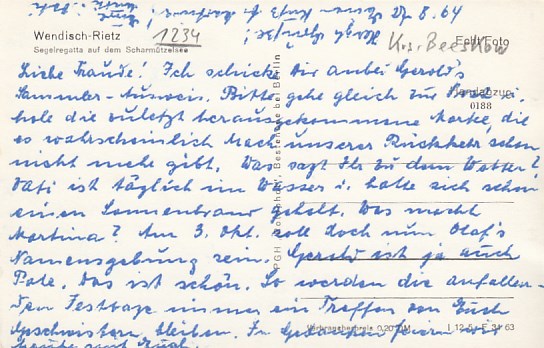 27.8.64
Wendisch-Rietz
Segelregatta auf dem Scharmützelsee
1234
Krs. Beeskow
Echt Foto
Handabzug
0188
Liebe Traude! Ich schicke Dir anbei Gerold's
Sammler-Ausweis. Bitte gehe gleich zur Post u.
hole die zuletzt herausgekommene Marke, die
es wahrscheinlich nach unserer Rückkehr schon
nicht mehr gibt. Was sagt Ihr zu dem Wetter?
Vati ist täglich im Wasser u. hatte sich schon
einen Sonnenbrand geholt. Was macht
Martina? Am 3. Okt. soll doch nun Olaf's
Namensgebung sein. Gerold ist ja auch
Pate. Das ist schön. So werden die anfallen-
den Festtage immer ein Treffen von Euch
Geschwistern bleiben. In Gedanken feiern wir
heute mit Euch.
Bestensee bei Berlin
Verbraucherpreis 0,20 DM